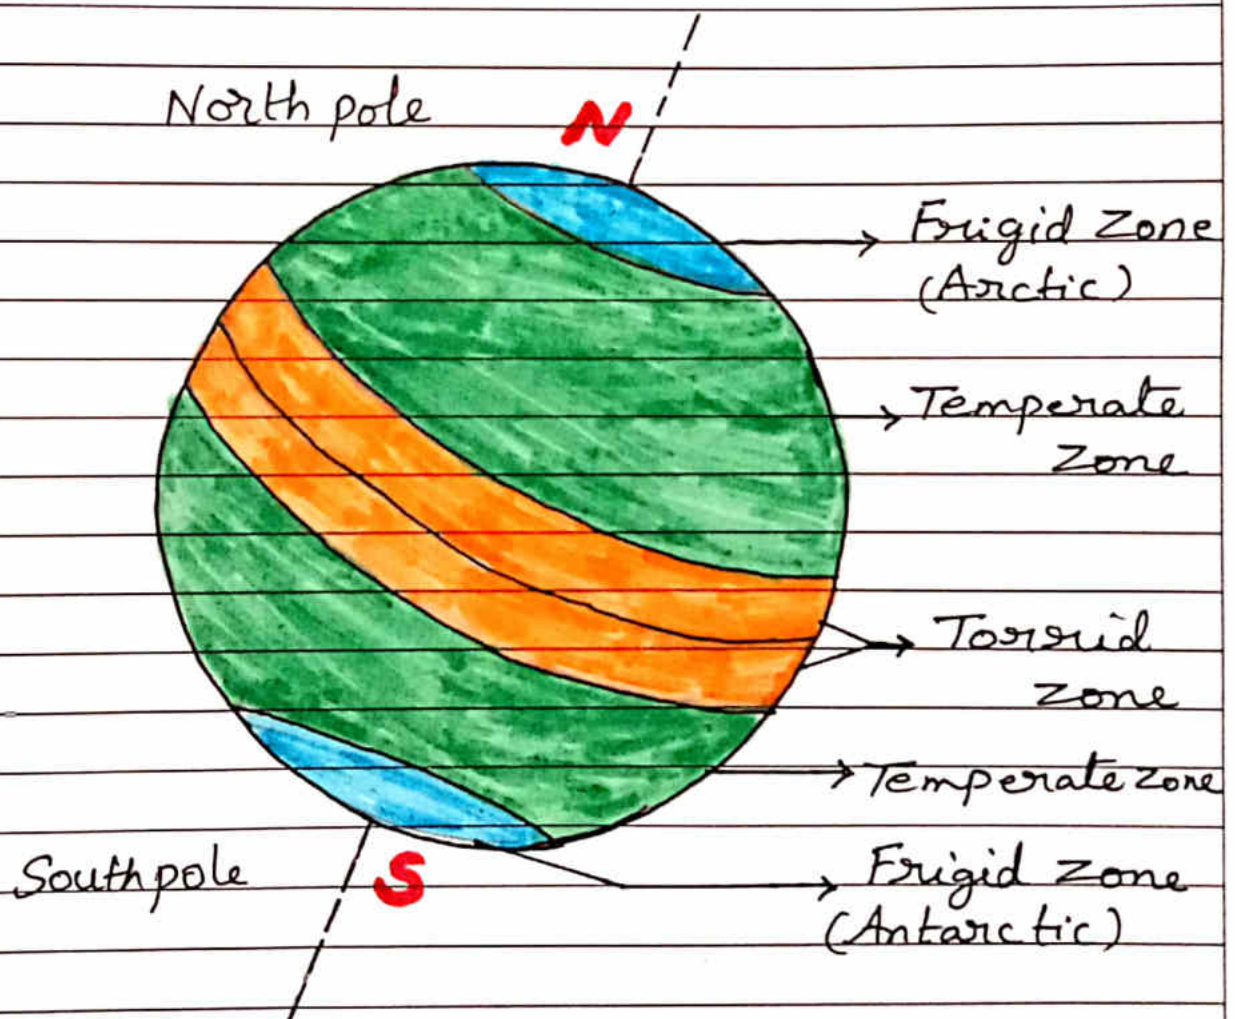 North pole
N
Frigid Zone
(Arctic)
Temperate
Zone
Torrid
Zone
Temperate Zone
South pole
S
Frigid Zone
(Antarctic)